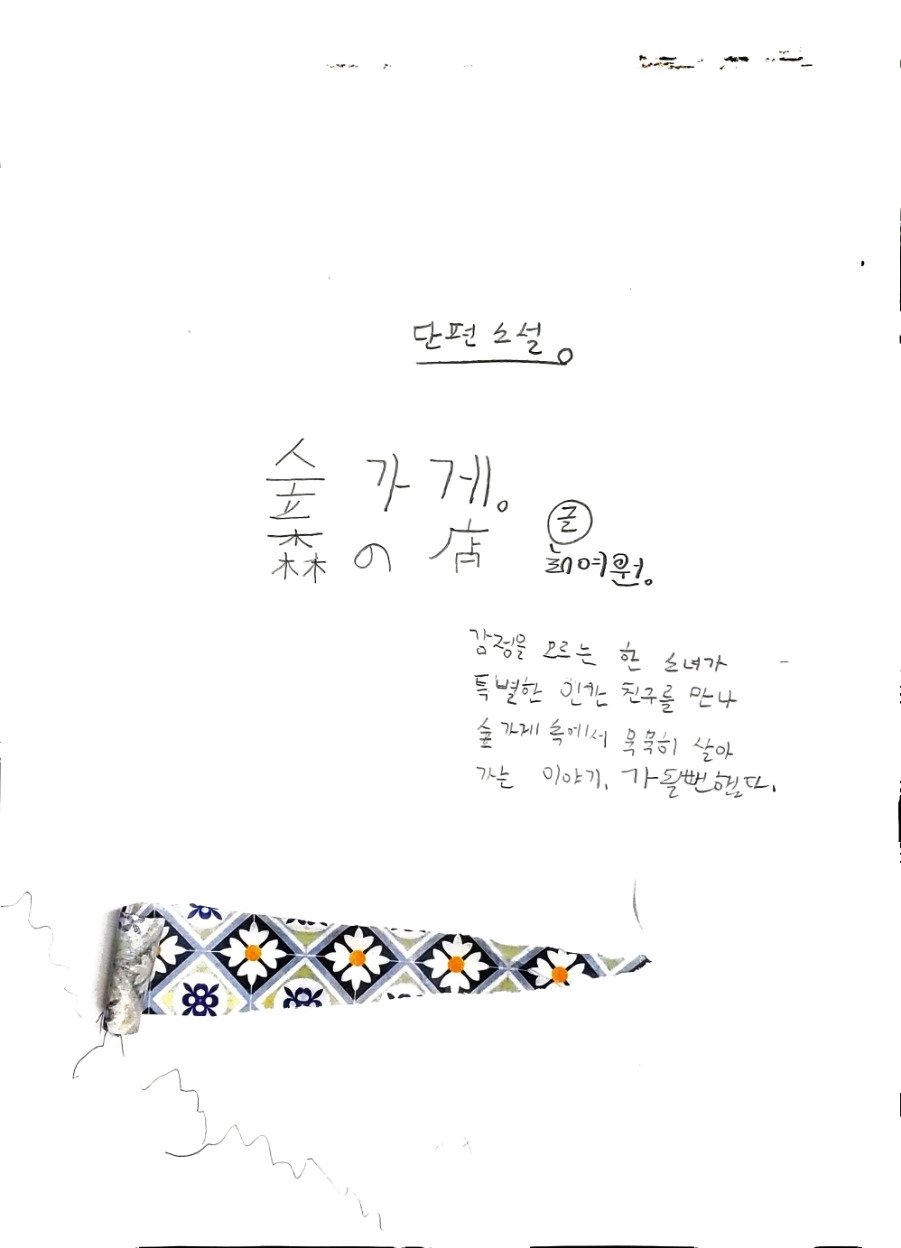 단편 소설。
숲 가게。
森の店
글
여원。
감정을 모르는 한 소녀가
특별한 인간 친구를 만나
숲 가게 속에서 묵묵히 살아
가는 이야기. 가 될뻔했다.